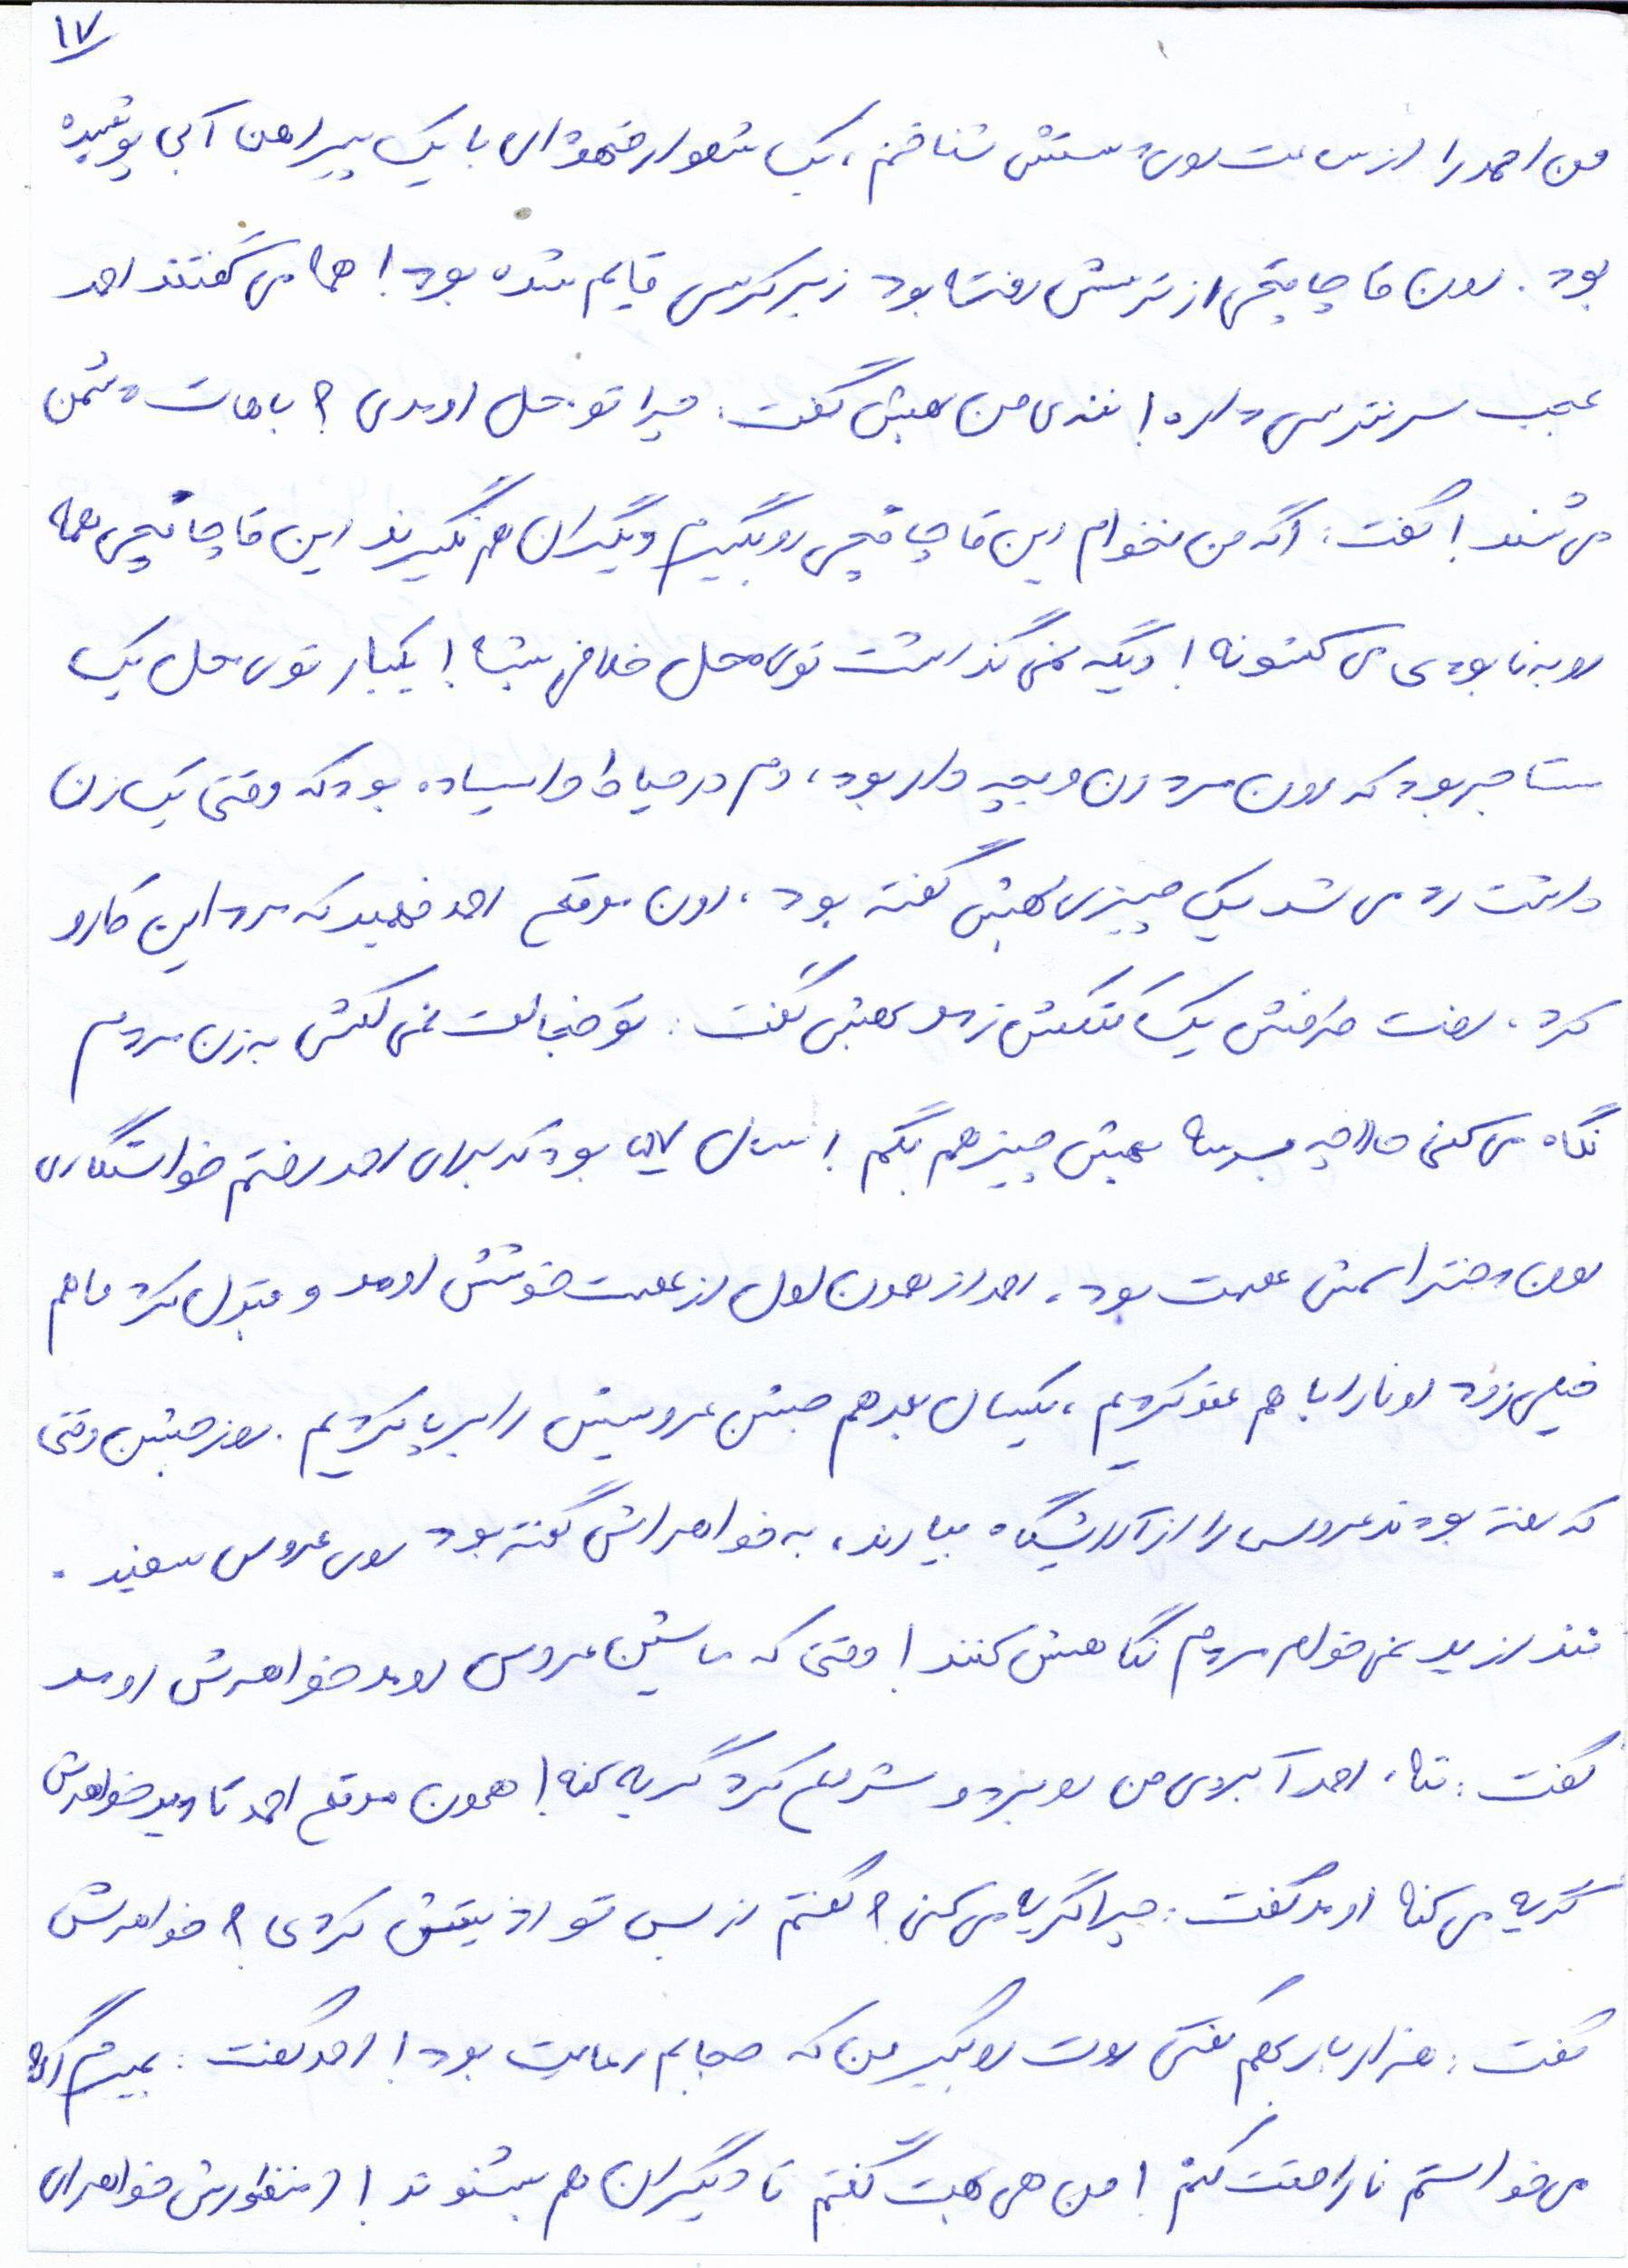 ۱۷
من احمد را از ساعت روی دستش شناختم، یک شلوار قهوه‌ای با یک پیراهن آبی پوشیده
بود. اون قاچاقچی از ترسش رفته بود زیر کرسی قایم شده بود! همه می گفتند احمد
عجب سر نترسی داره! ننه‌ی من بهش گفت: چرا تو محل اومدی؟ باهات دشمن
می شند! گفت: اگه من نخوام این قاچاقچی رو بگیرم دیگران هم نگیرند این قاچاقچی همه
رو به نابودی می کشونه! دیگه نمی گذاشت توی محل خلافی بشه! یکبار توی محل یک
مستاجر بود که اون مرد زن و بچه دار بود، دم در حیاط وایساده بود که وقتی یک زن
داشت رد می شد یک چیزی بهش گفته بود، اون موقع احمد فهمید که مرد این کارو
کرد، رفت طرفش یک کتکش زد و بهش گفت: تو خجالت نمی کشی به زن مردم
نگاه می کنی حالا چه برسه بهش چیز هم بگم! سال ۵۷ بود که برای احمد رفتم خواستگاری
اون دختر اسمش عصمت بود، احمد از همون اول از عصمت خوشش اومد و قبول کرد ما هم
خیلی زود اونا را با هم عقد کردیم، یکسال بعد هم جشن عروسیش را برپا کردیم. روز جشن وقتی
که رفته بودند عروس را از آرایشگاه بیارند، به خواهراش گفته بود روی عروس سفید
بندازید نمی خوام مردم نگاهش کنند! وقتی که ماشین عروس اومد خواهرش اومد
گفت: ننه، احمد آبروی من رو برد و شروع کرد گریه کنه! همون موقع احمد تا دید خواهرش
گریه می کنه اومد گفت: چرا گریه می کنی؟ گفتم از بس تو اذیتش کردی؟ خواهرش
گفت: هزار بار بهم گفتی روت رو بگیر من که حجابم رعایت بود! احمد گفت: بمیرم اگه
می خواستم ناراحتت کنم! من هی بهت گفتم تا دیگران هم بشنوند! از منظورش خواهرای